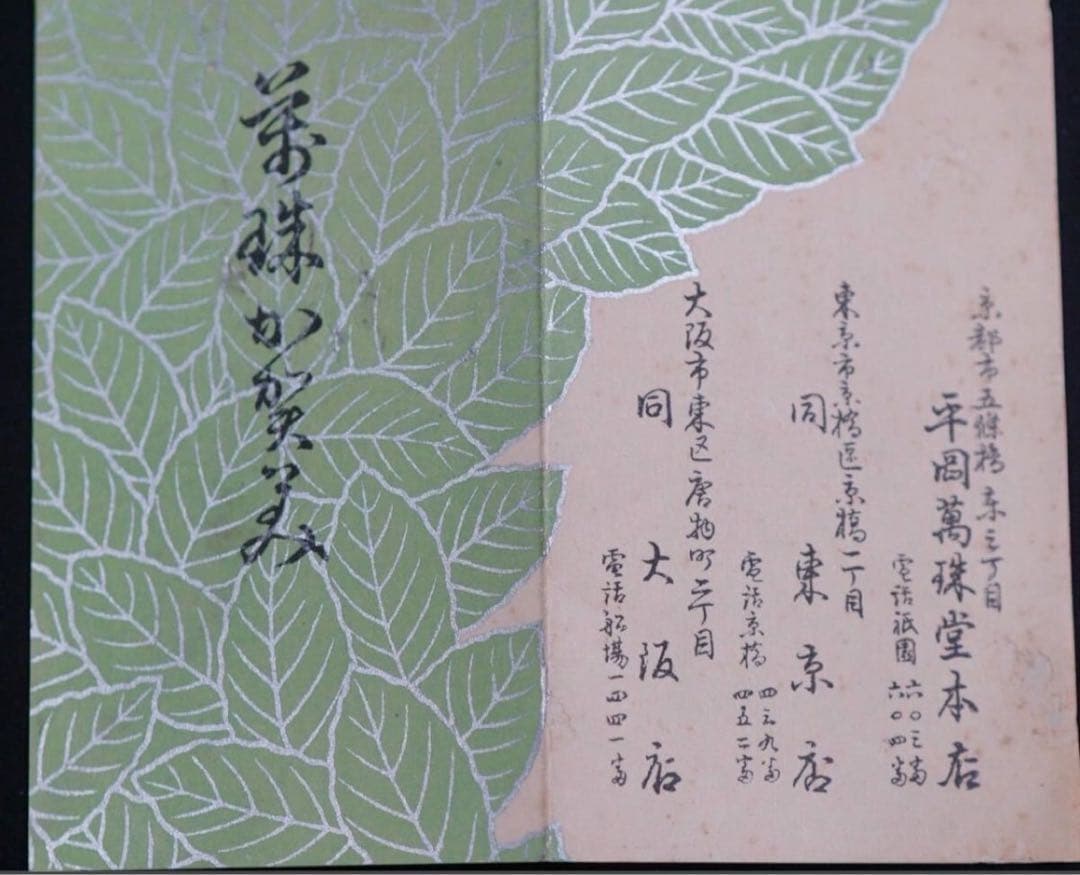 京都市五條橋東三丁目
平岡萬珠堂本店
電話祇園 六六〇三番
六〇〇四番
東京市京橋区京橋二丁目
同 東京店
電話京橋 四三九番
四五二番
大阪市東区唐物町二丁目
同 大阪店
電話船場一四四一番
萬珠かゞ美